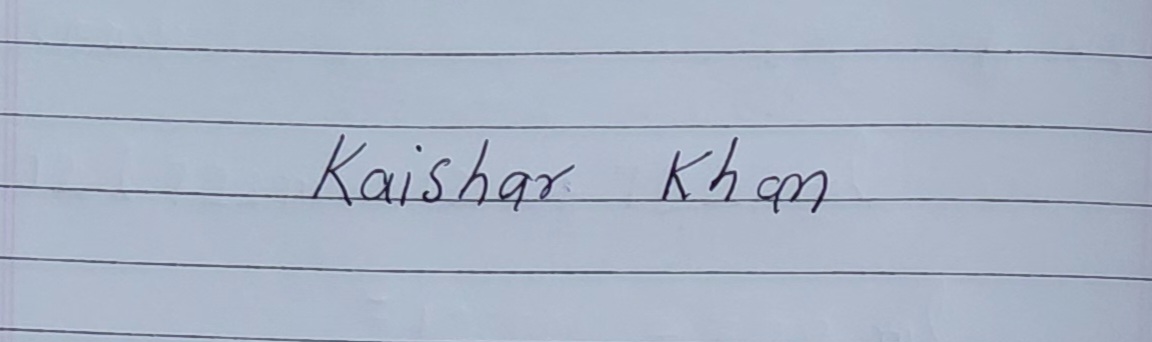 Kaishar Khan